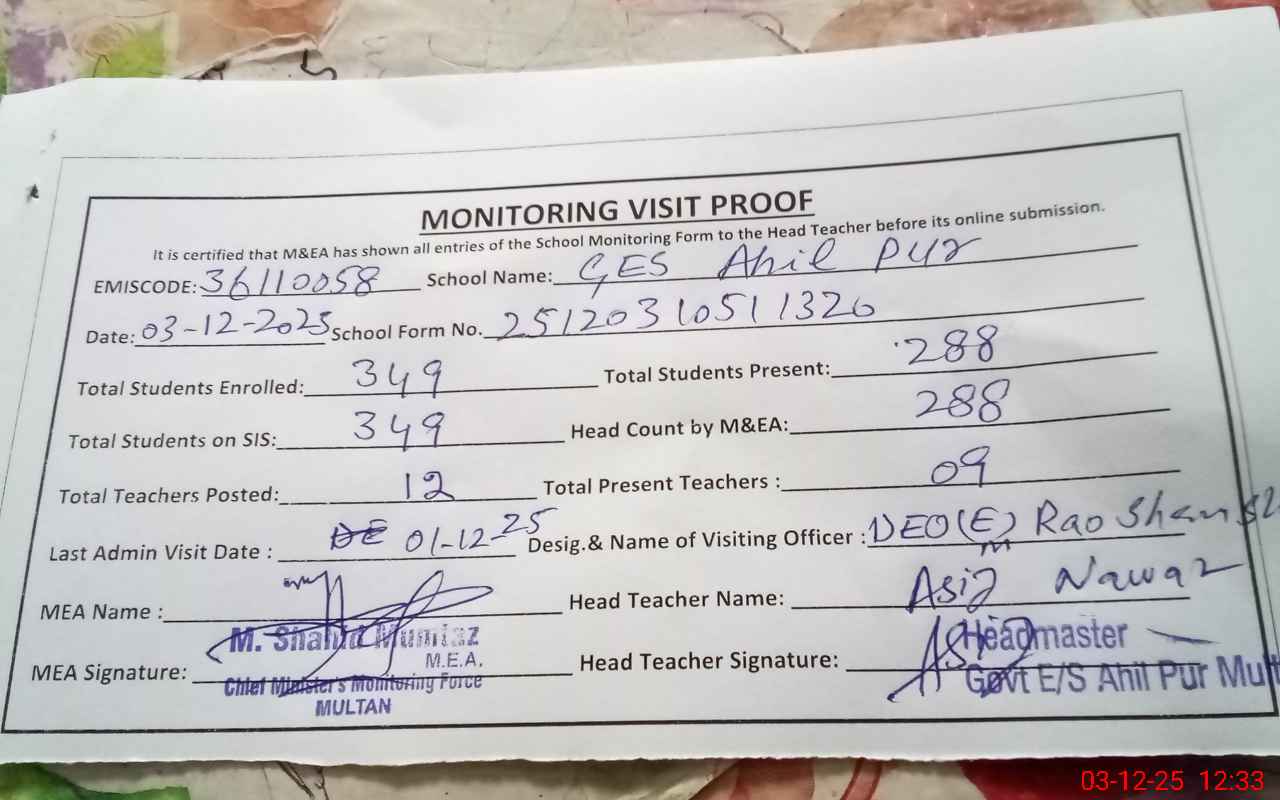 MONITORING VISIT PROOF
It is certified that M&EA has shown all entries of the School Monitoring Form to the Head Teacher before its online submission.
EMISCODE: 36110058 School Name: GES Ahil Pur
Date: 03-12-2025 School Form No. 25120310511326
Total Students Enrolled: 349 Total Students Present: 288
Total Students on SIS: 349 Head Count by M&EA: 288
Total Teachers Posted: 12 Total Present Teachers : 09
Last Admin Visit Date : 01-12-25 Desig.& Name of Visiting Officer : DEO(E) Rao
MEA Name : Head Teacher Name: Asif Nawaz
M. Shahid Mumtaz
M.E.A.
MEA Signature: Head Teacher Signature:
Chief Minister's Monitoring Force
MULTAN
Headmaster
Govt E/S Ahil Pur Mult
03-12-25 12:33